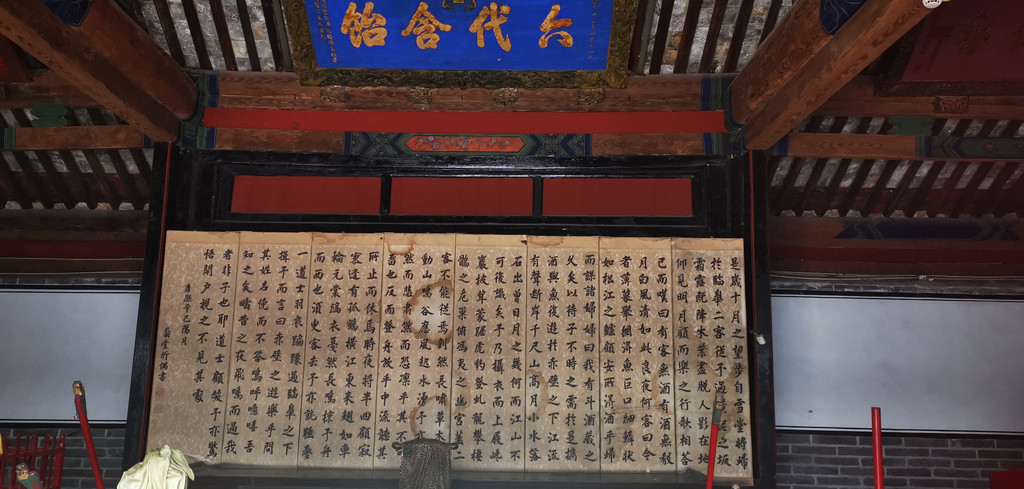 六代含飴
是歲十月之望步自雪堂將歸
於臨皋二客從予過黃泥之坂
霜露既降木葉盡脫人影在地
仰見明月顧而樂之行歌相答
已而嘆曰有客無酒有酒無殽
月白風清如此良夜何客曰今
者薄暮舉網得魚巨口細鱗狀
如松江之鱸顧安所得酒乎歸
而謀諸婦婦曰我有斗酒藏之
久矣以待子不時之需於是攜
酒與魚復遊於赤壁之下江流
有聲斷岸千尺山高月小水落
石出曾日月之幾何而江山不
可復識矣予乃攝衣而上履巉
巖披茸蒙踞虎豹登虬龍攀棲
鶻之危巢俯馮夷之幽宮蓋二
客不能從焉劃然長嘯草木
動山鳴谷應風起水湧予
然而悲肅然而恐凜乎其不
留也反而登舟放乎中流聽其
所止而休焉時夜將半四顧寂
寥適有孤鶴橫江東來翅如車
輪元裳縞衣戛然長鳴掠予舟
而西也須臾客去予亦就睡夢
一道士羽衣蹁躚過臨皋之下
揖予而言曰赤壁之遊樂乎問
其姓名俛而不答嗚呼噫嘻吾
知之矣疇昔之夜飛鳴而過我
者非子也耶道士顧笑予亦驚
悟開戶視之不見其處
康熙辛巳陽月